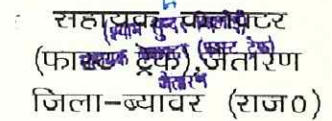 सहायक कलेक्टर
(श्याम सुन्दर बिश्नोई)
(फास्ट ट्रेक), जैतारण
सहायक कलेक्टर (फास्ट ट्रेक)
जैतारण
जिला-ब्यावर (राज0)